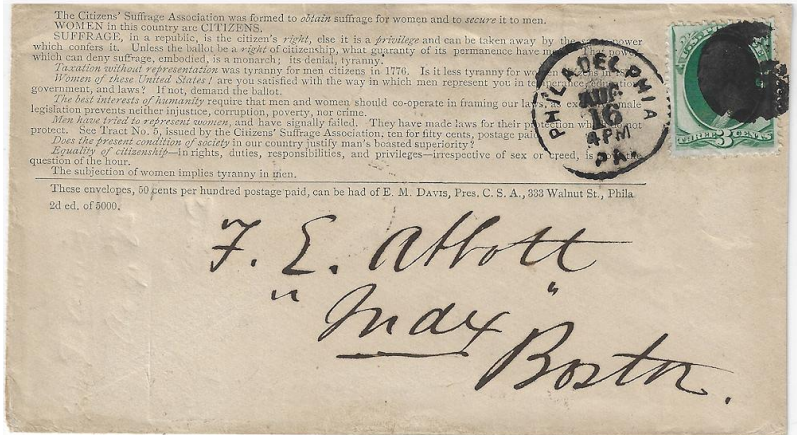 The Citizens' Suffrage Association was formed to obtain suffrage for women and to secure it to men.
WOMEN in this country are CITIZENS.
SUFFRAGE, in a republic, is the citizen's right, else it is a privilege and can be taken away by the same power
which confers it. Unless the ballot be a right of citizenship, what guaranty of its permanence have men? That power
which can deny suffrage, embodied, is a monarch; its denial, tyranny.
Taxation without representation was tyranny for men citizens in 1776. Is it less tyranny for women
Women of these United States! are you satisfied with the way in which men represent you in temperance, education,
government, and laws? If not, demand the ballot.
The best interests of humanity require that men and women should co-operate in framing our laws, as exclusive male
legislation prevents neither injustice, corruption, poverty, nor crime.
Men have tried to represent women, and have signally failed. They have made laws for their protection which do not
protect. See Tract No. 5, issued by the Citizens' Suffrage Association, ten for fifty cents, postage paid.
Does the present condition of society in our country justify man's boasted superiority?
Equality of citizenship—In rights, duties, responsibilities, and privileges—irrespective of sex or creed, is now the
question of the hour.
The subjection of women implies tyranny in men.
These envelopes, 50 cents per hundred postage paid, can be had of E. M. DAVIS, Pres. C. S. A., 333 Walnut St., Phila
2d ed. of 5000.
PHILADELPHIA
AUG
16
4 PM
PA.
THREE 3 CENTS
F. E. Abbott
"Index"
Boston.